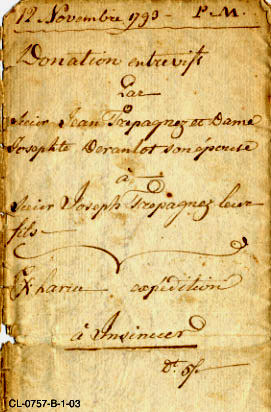 12 Novembre 1793 - P. M.
Donation entrevifs
Par
Sieur Jean Trepagnez et Dame
Josephte Derautot son épouse
à
Sieur Joseph Trepagnez leur
fils
expédition
à Insinuer
CL-0757-B-1-03